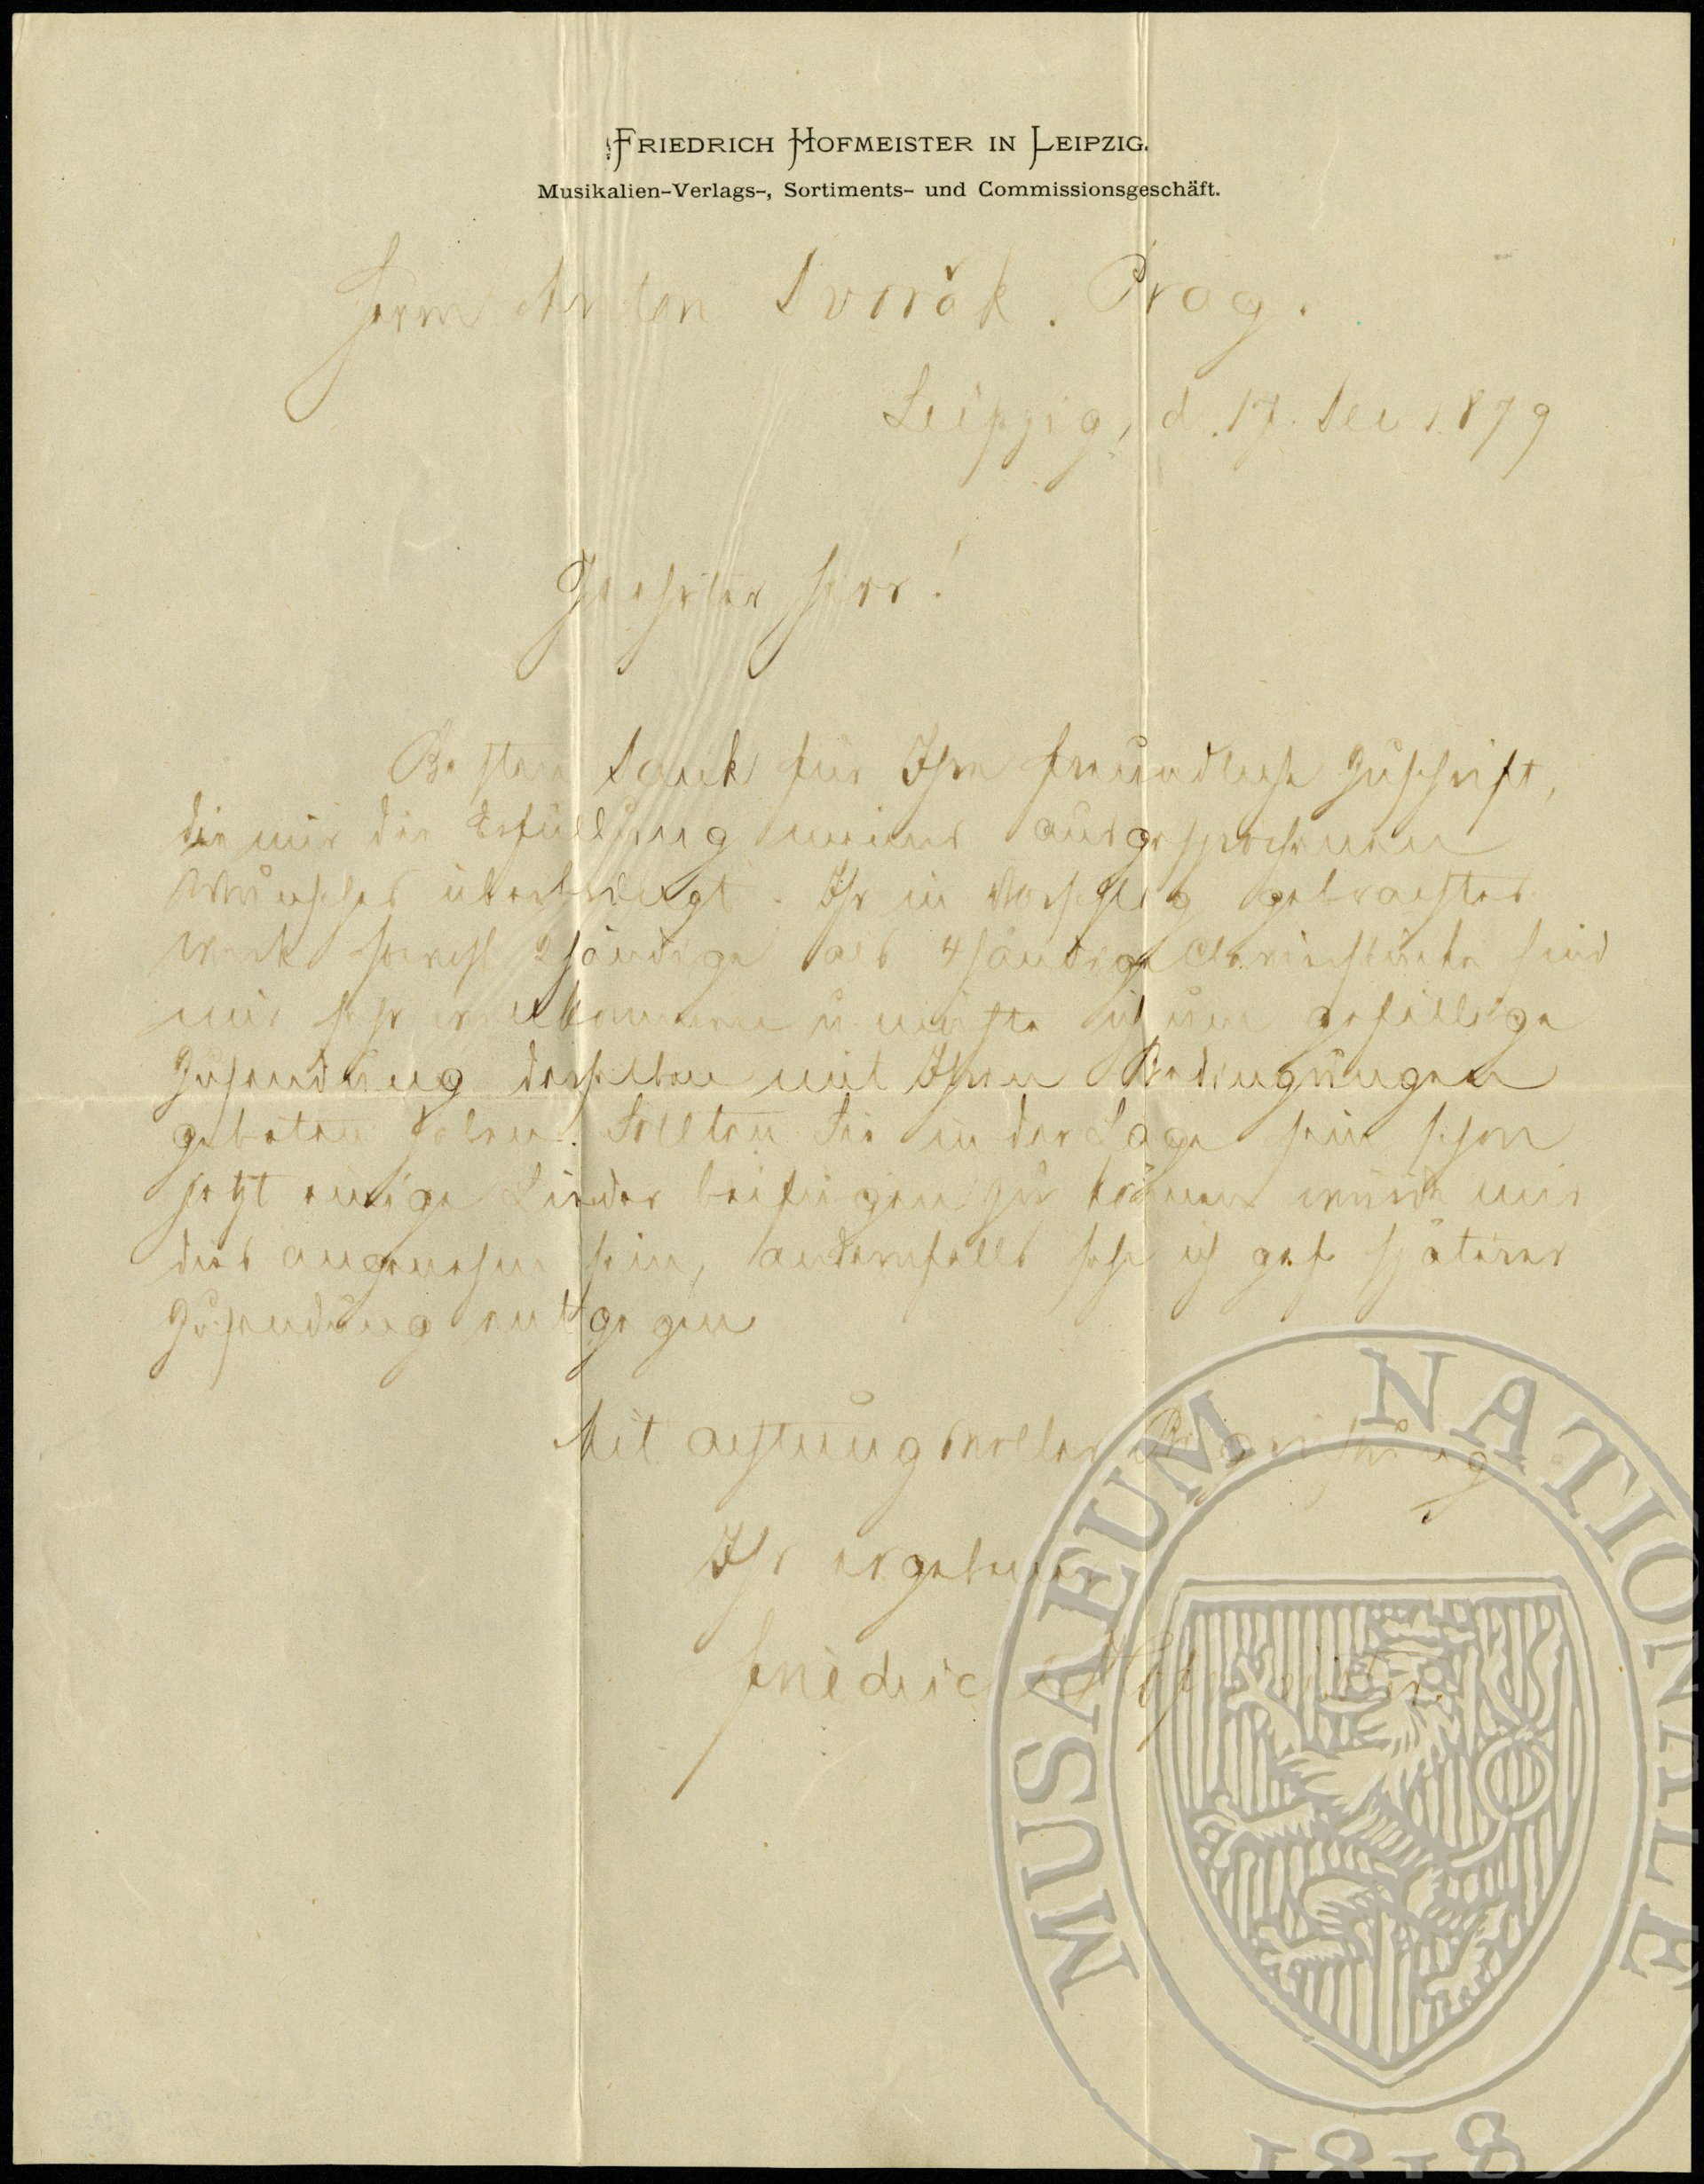 FRIEDRICH HOFMEISTER IN LEIPZIG.
Musikalien-Verlags-, Sortiments- und Commissionsgeschäft.
Herrn Anton Dvořák. Prag.
Leipzig, d. 17. Dec 1879
Geehrter Herr!
Besten Dank für Ihre freundliche Zuschrift,
die mir die Erfüllung meines ausgesprochenen
Wunsches überbringt. Ihr in Vorschlag gebrachtes
Werk sowohl 2händige als 4händige Clavierstücke sind
mir sehr willkommen u. möchte ich um gefällige
Zusendung derselben mit Ihren Bedingungen
gebeten haben. Sollten Sie in der Lage sein schon
jetzt einige Lieder beifügen zu können würde mir
dies angenehm sein, andernfalls sehe ich gef. späterer
Zusendung entgegen
Mit achtungsvoller Begrüßung
Ihr ergebener
Friedrich Hofmeister.
MUSAEUM NATIONALE
1818